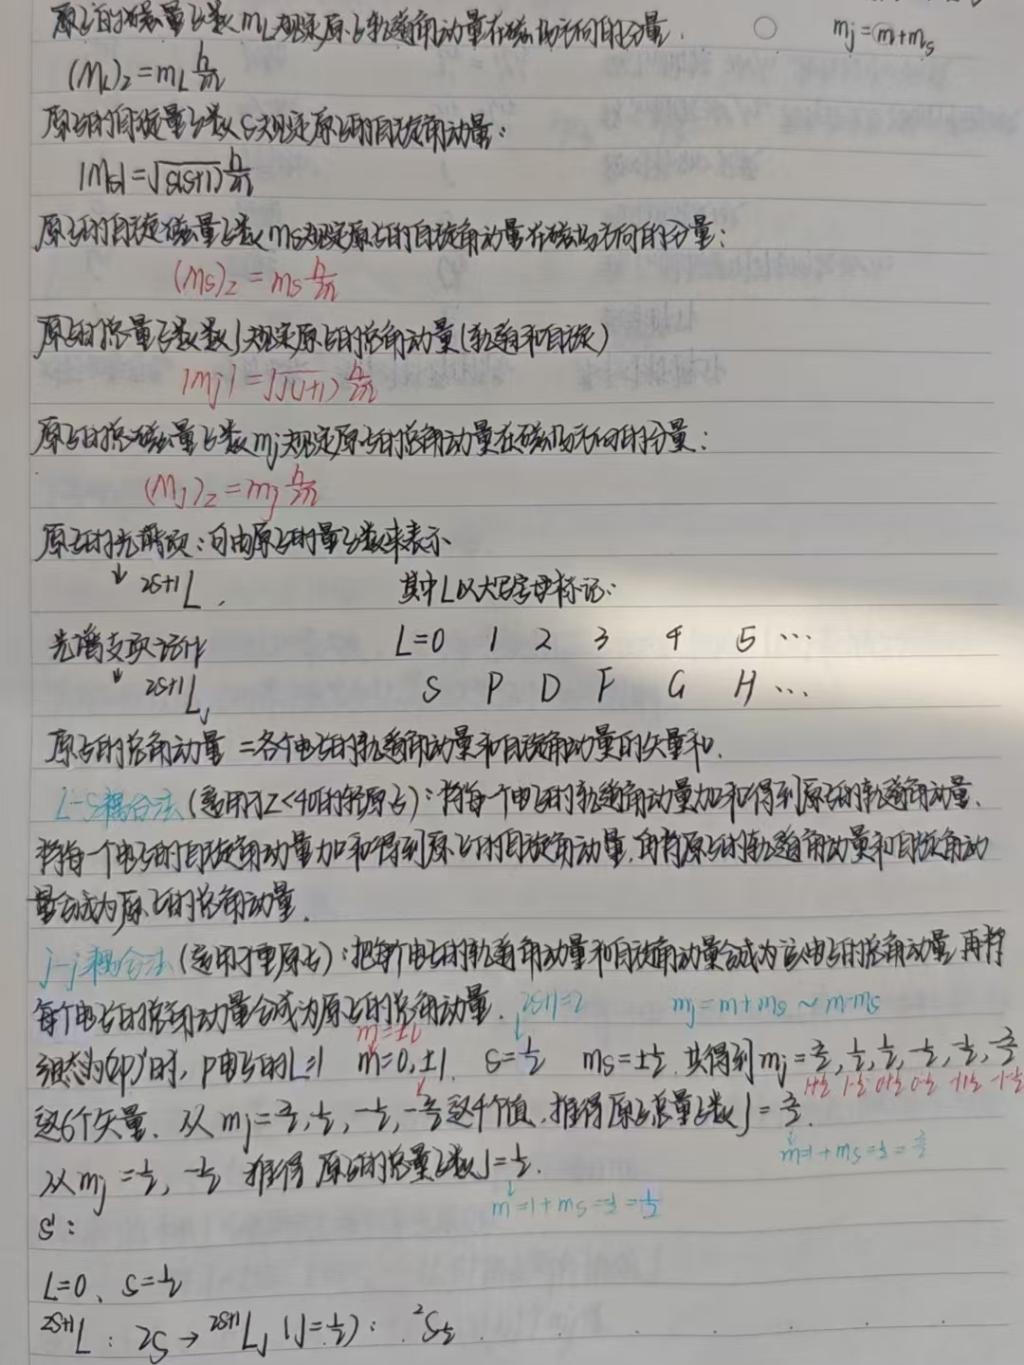 原子的磁量子数mL规定原子轨道角动量在磁场方向的分量. mj=m+ms
(ML)z=mL h/2π
原子的自旋量子数S规定原子的自旋角动量:
|Ms|=√S(S+1) h/2π
原子的自旋磁量子数ms规定原子的自旋角动量在磁场方向的分量:
(Ms)z=ms h/2π
原子的总量子数数J规定原子的总角动量(轨道和自旋)
|Mj|=√J(J+1) h/2π
原子的总磁量子数mj规定原子的总角动量在磁场方向的分量:
(MJ)z=mj h/2π
原子的光谱项:可由原子的量子数来表示
↓ 2S+1L. 其中L以大写字母标记:
光谱支项记作 L=0 1 2 3 4 5 …
↓ 2S+1LJ S P D F G H …
原子的总角动量=各个电子的轨道角动量和自旋角动量的矢量和.
L-S耦合法(适用于Z<40的轻原子):将每一个电子的轨道角动量加和得到原子的轨道角动量、
将每一个电子的自旋角动量加和得到原子的自旋角动量,再将原子的轨道角动量和自旋角动
量合成为原子的总角动量.
j-j耦合法(适用于重原子):把每个电子的轨道角动量和自旋角动量合成为该电子的总角动量,再将
每个电子的总角动量合成为原子的总角动量. 2S+1=2 mj=m+ms~m-ms
m=±l
组态为(2p)¹时,p电子的L=1 m=0,±1. S=1/2 ms=±1/2.共得到mj=3/2,1/2,1/2,-1/2,-1/2,-3/2
1+1/2 1-1/2 0+1/2 0-1/2 -1+1/2 -1-1/2
这6个矢量.从mj=3/2,1/2,-1/2,-3/2这4个值,推得原子总量子数J=3/2.
m=1+ms=1/2=3/2
从mj=1/2,-1/2 推得原子的总量子数J=1/2.
m=1+ms=-1/2=1/2
S¹:
L=0、S=1/2
2S+1L: 2S→2S+1LJ (J=1/2): ²S1/2